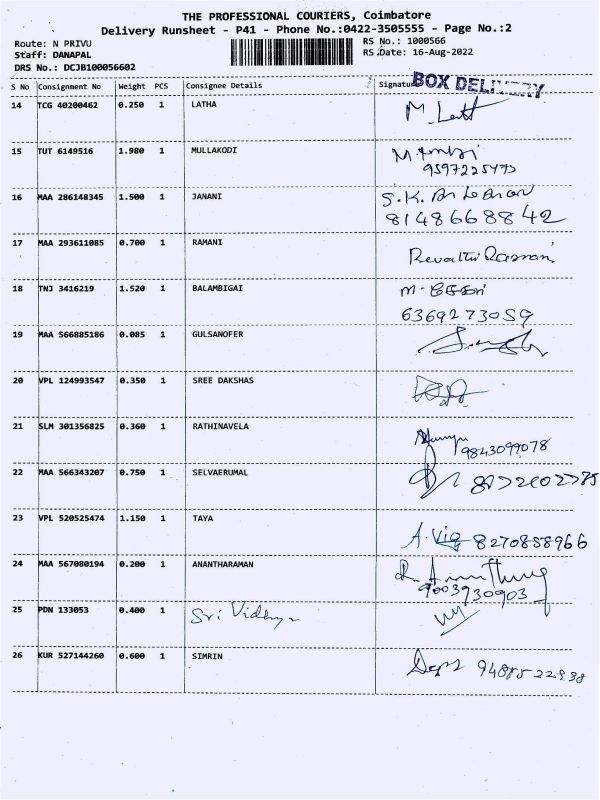 THE PROFESSIONAL COURIERS, Coimbatore
Delivery Runsheet - P41 - Phone No.:0422-3505555 - Page No.:2
Route: N PRIVU
RS No.: 1000566
Staff: DANAPAL
RS Date: 16-Aug-2022
DRS No.: DCJB100056602
BOX DELIVERY
S No Consignment No Weight PCS Consignee Details Signature
14 TCG 40200462 0.250 1 LATHA M. Latt
15 TUT 6149516 1.980 1 MULLAKODI
9597225475
16 MAA 286148345 1.500 1 JANANI S.K.
8148668842
17 MAA 293611085 0.700 1 RAMANI Revathi Ramani
18 TNJ 3416219 1.520 1 BALAMBIGAI M.
6369273059
19 MAA 566885186 0.085 1 GULSANOFER
20 VPL 124993547 0.350 1 SREE DAKSHAS
21 SLM 301356825 0.360 1 RATHINAVELA
9843099078
22 MAA 566343207 0.750 1 SELVAERUMAL
23 VPL 520525474 1.150 1 TAYA A. Vig 8270858966
24 MAA 567080194 0.200 1 ANANTHARAMAN
9003930903
25 PDN 133053 0.400 1 Sri Vidhya
26 KUR 527144260 0.600 1 SIMRIN